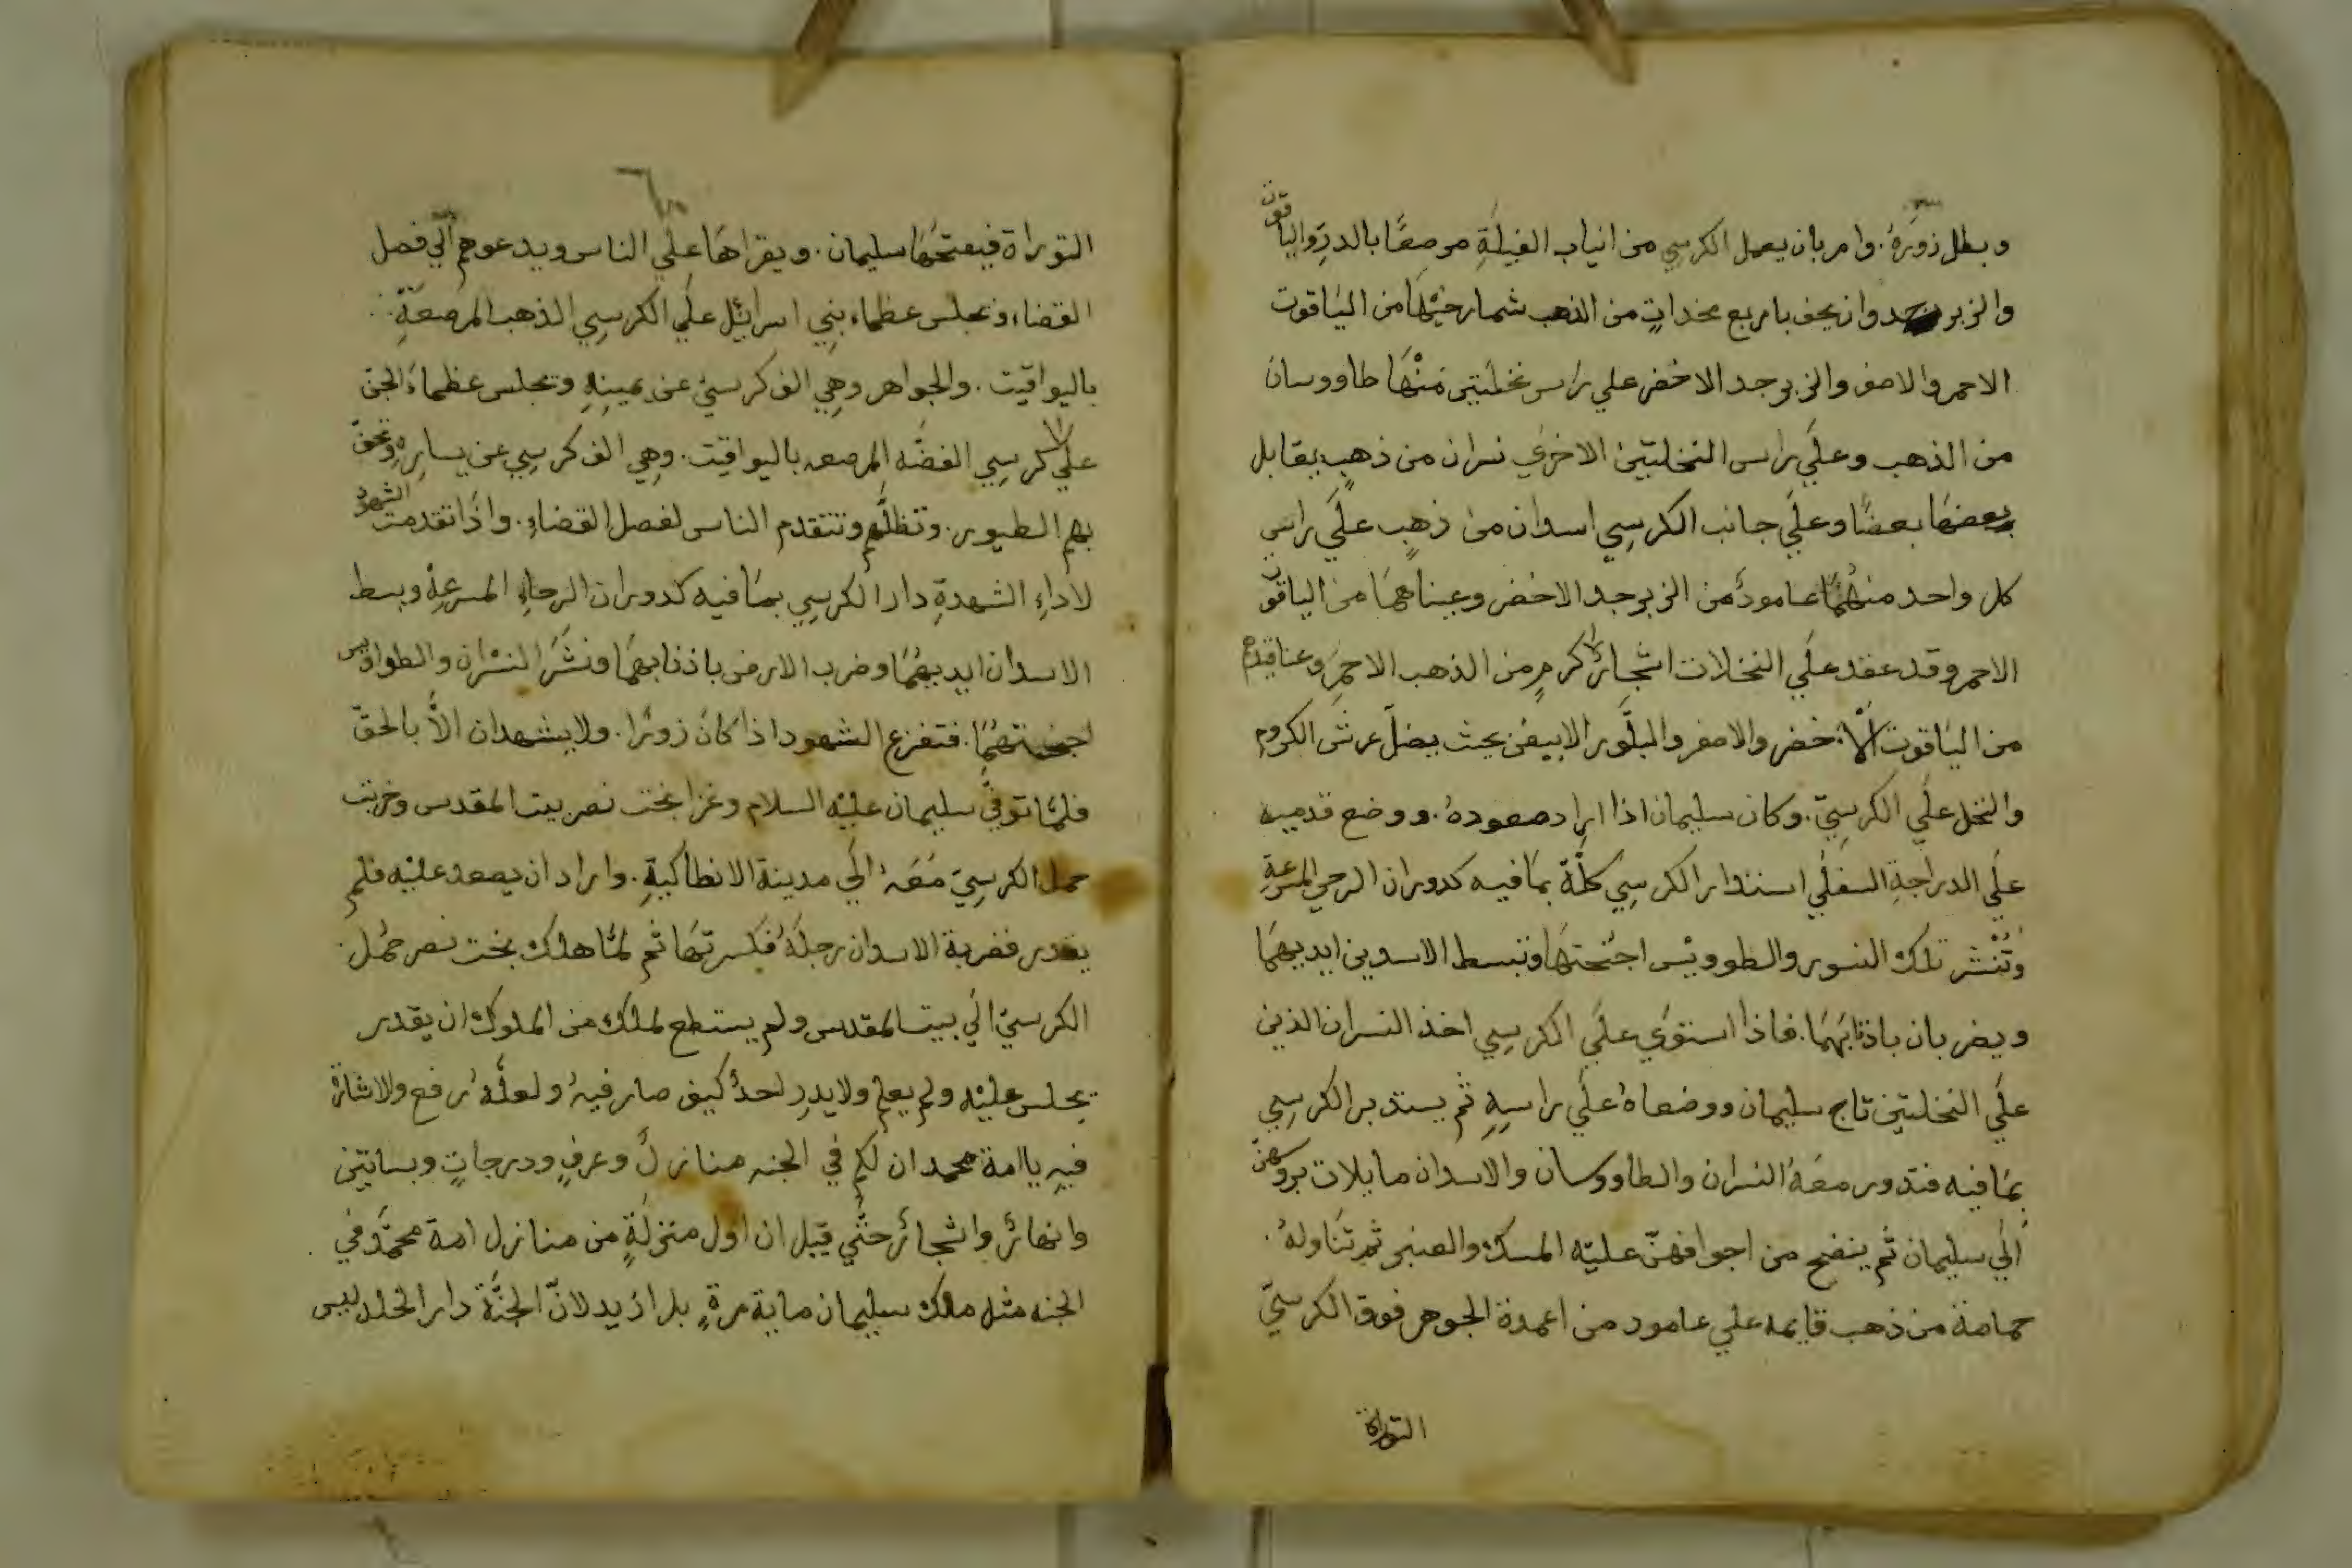 وبطل زوره. وامر بان يعمل الكرسي من انياب الفيلةِ مرصعًا بالدرِّ والياقوت
والزبرجد وان يحف باربع نخداتٍ من الذهب شمارخيْهَا من اليَاقوت
الاحمر والاصفر والزبرجد الاخضر علي راس نخلتين منْهَا طاووسان
من الذهب وعلَي راس النخلتين الاخرَي نسران من ذهبٍ يقابل
بعضهَا بعضًا وعلَي جانب الكرسِي اسدان من ذهبٍ علَي راس
كل واحد منهُمَا عامودٌ من الزبرجد الاخضر وعيناهمَا من الياقوت
الاحمر وقد عقد علَي النخلات اشجارُ كرمٍ من الذهب الاحمرِ وعناقيدهم
من اليَاقوت الاخضر والاصفر والبلَّور الابيض بحيث يضلّ عرش الكروم
والنخل علَي الكرسِيّ. وكان سليمان اذا اراد صعودهُ. ووضع قدميه
علَي الدراجةِ السفلَي استدار الكرسِي كلَّهُ بمَا فيه كدوران الرحي المسرعةِ
وتُنْشر تلك النسور والطوويْس اجْنحتهَا وتبسط الاسدين ايديهمَا
ويضربان باذنابهمَا. فاذا استوَي علَي الكرسِي اخذ النسران الذين
علَي النخلتين تاج سليمان ووضعاهُ علَي راسهِ ثم يستدير الكرسِي
بمَا فيه فتدور معَهُ النسران والطاووسان والاسدان مايلات بروسهنّ
الَي سليمان ثم ينضح من اجوافهنّ عليْه المسك والعنبر ثم تناولهُ.
حمامة من ذهب قايمه علي عامود من اعمدة الجوهر فوق الكرسيّ
التوراة
التوراة فيفتحهَا سليمان. ويقراهَا علَي الناس ويدعوهم الَي فصل
القضاء وتجلس عظماء بنِي اسرائيل علَي الكرسِي الذهب المرصعَةِ.
باليواقيت. والجواهر وهِي الف كرسيّ عن يمينِهِ وتجلس عظماءُ الجن
علَي كرسِي الفضَّه المرصعه باليواقيت. وهِي الف كرسِي عن يسارِهِ وتحفّ
بهم الطيور. وتظلُّهم وتتقدم الناس لفصل القضاءِ. واذَا تقدمت الشهود
لاداءِ الشهدةِ دار الكرسِي بمَا فيه كدوران الرحاءِ المسرعةِ وبسط
الاسدان ايديهُمَا وضرب الارض باذنابهمَا ونشَر النسْران والطواويس
اجنحتهُمَا. فتفزع الشهود اذا كانَ زورًا. ولا يشهدان الاَّ بالحقّ
فلمَّا توفّي سليمان عليْه السلام وغزا بخت نصر بيت المقدس وخربت
حمل الكرسِيّ مَعَهُ الَي مدينة الانطاكيةِ. واراد ان يصعد عليْه فلم
يقدر فضربة الاسدان رجلَهُ فكسرتهَا ثم لمَّا هلك بخت نصر حمُل.
الكرسيّ الَي بيت المقدس ولم يستطع لملك من الملوك ان يقدر
يجلس عليْه ولم يعلم ولا يدرِ احدٌ كيف صار فيهُ ولعلَّهُ رفع والاشارة
فيهِ ياامة محمد ان لكم في الجنه منازلٌ وغرفٍ ودرجاتٍ وبساتين
وانهارٌ واشجارٌ حتَّي قيل ان اول منزلةٍ من منازل امة محمَّد في
الجنه مثل ملك سليمان ماية مرةٍ بل ازيد لانّ الجنَّة دار الخلد ليس